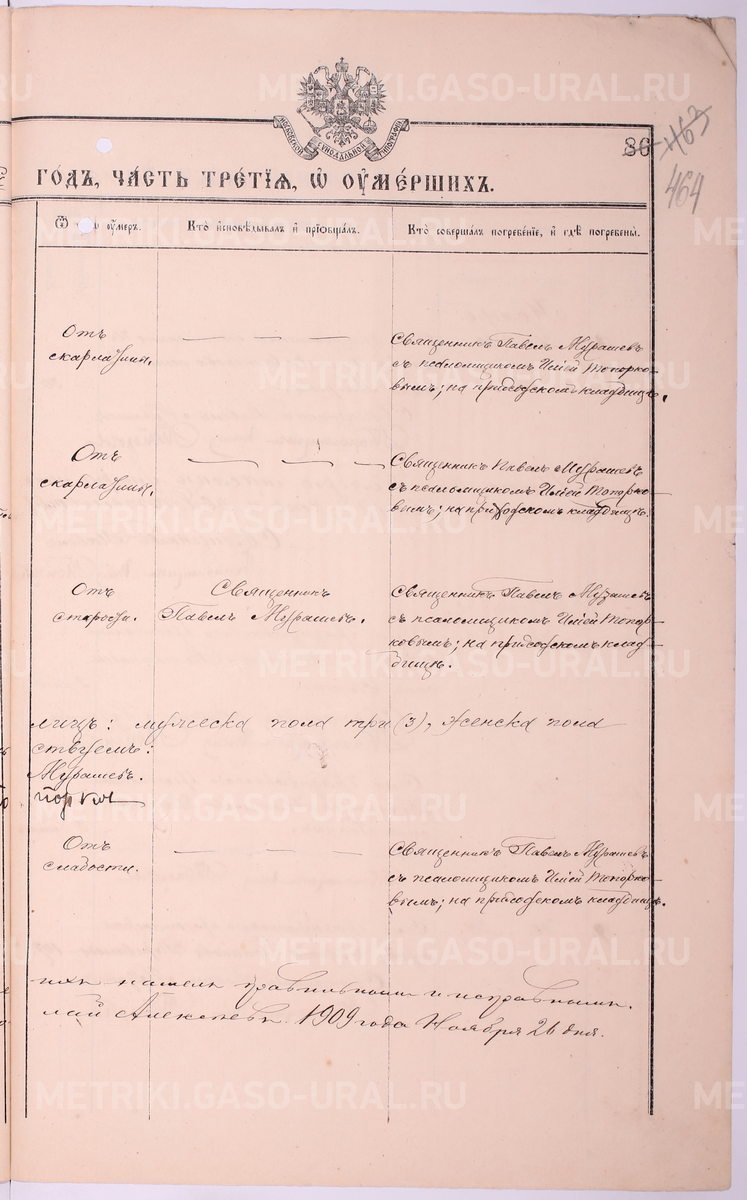 МОСКОВСКОЙ СѴНОДАЛЬНОЙ ТИПОГРАФІИ
86 463
464
ГОДЪ, ЧАСТЬ ТРЕТІЯ, Ѿ ОУМЕРШИХЪ.
Ѿ оумеръ.
Кто исповѣдывалъ и пріобщалъ.
Кто совершалъ погребеніе, и гдѣ погребены.
Отъ
скарлатины.
Священникъ Павелъ Мурашевъ
съ псаломщикомъ Ильей Топорко-
вымъ; на приходскомъ кладбищѣ.
Отъ
скарлатины.
Священникъ Павелъ Мурашевъ
съ псаломщикомъ Ильей Топорко-
вымъ; на приходскомъ кладбищѣ.
Отъ
старости.
Священникъ
Павелъ Мурашевъ.
Священникъ Павелъ Мурашевъ
съ псаломщикомъ Ильей Топор-
ковымъ; на приходскомъ клад-
бищѣ.
лицъ: мужеска пола три (3), женска пола
ствуемъ:
Мурашевъ.
Отъ
слабости.
Священникъ Павелъ Мурашевъ
съ псаломщикомъ Ильей Топорко-
вымъ; на приходскомъ кладбищѣ.
нашелъ правильными и исправными.
лай Алексѣевъ 1909 года Ноября 26 дня.
METRIKI.GASO-URAL.RU